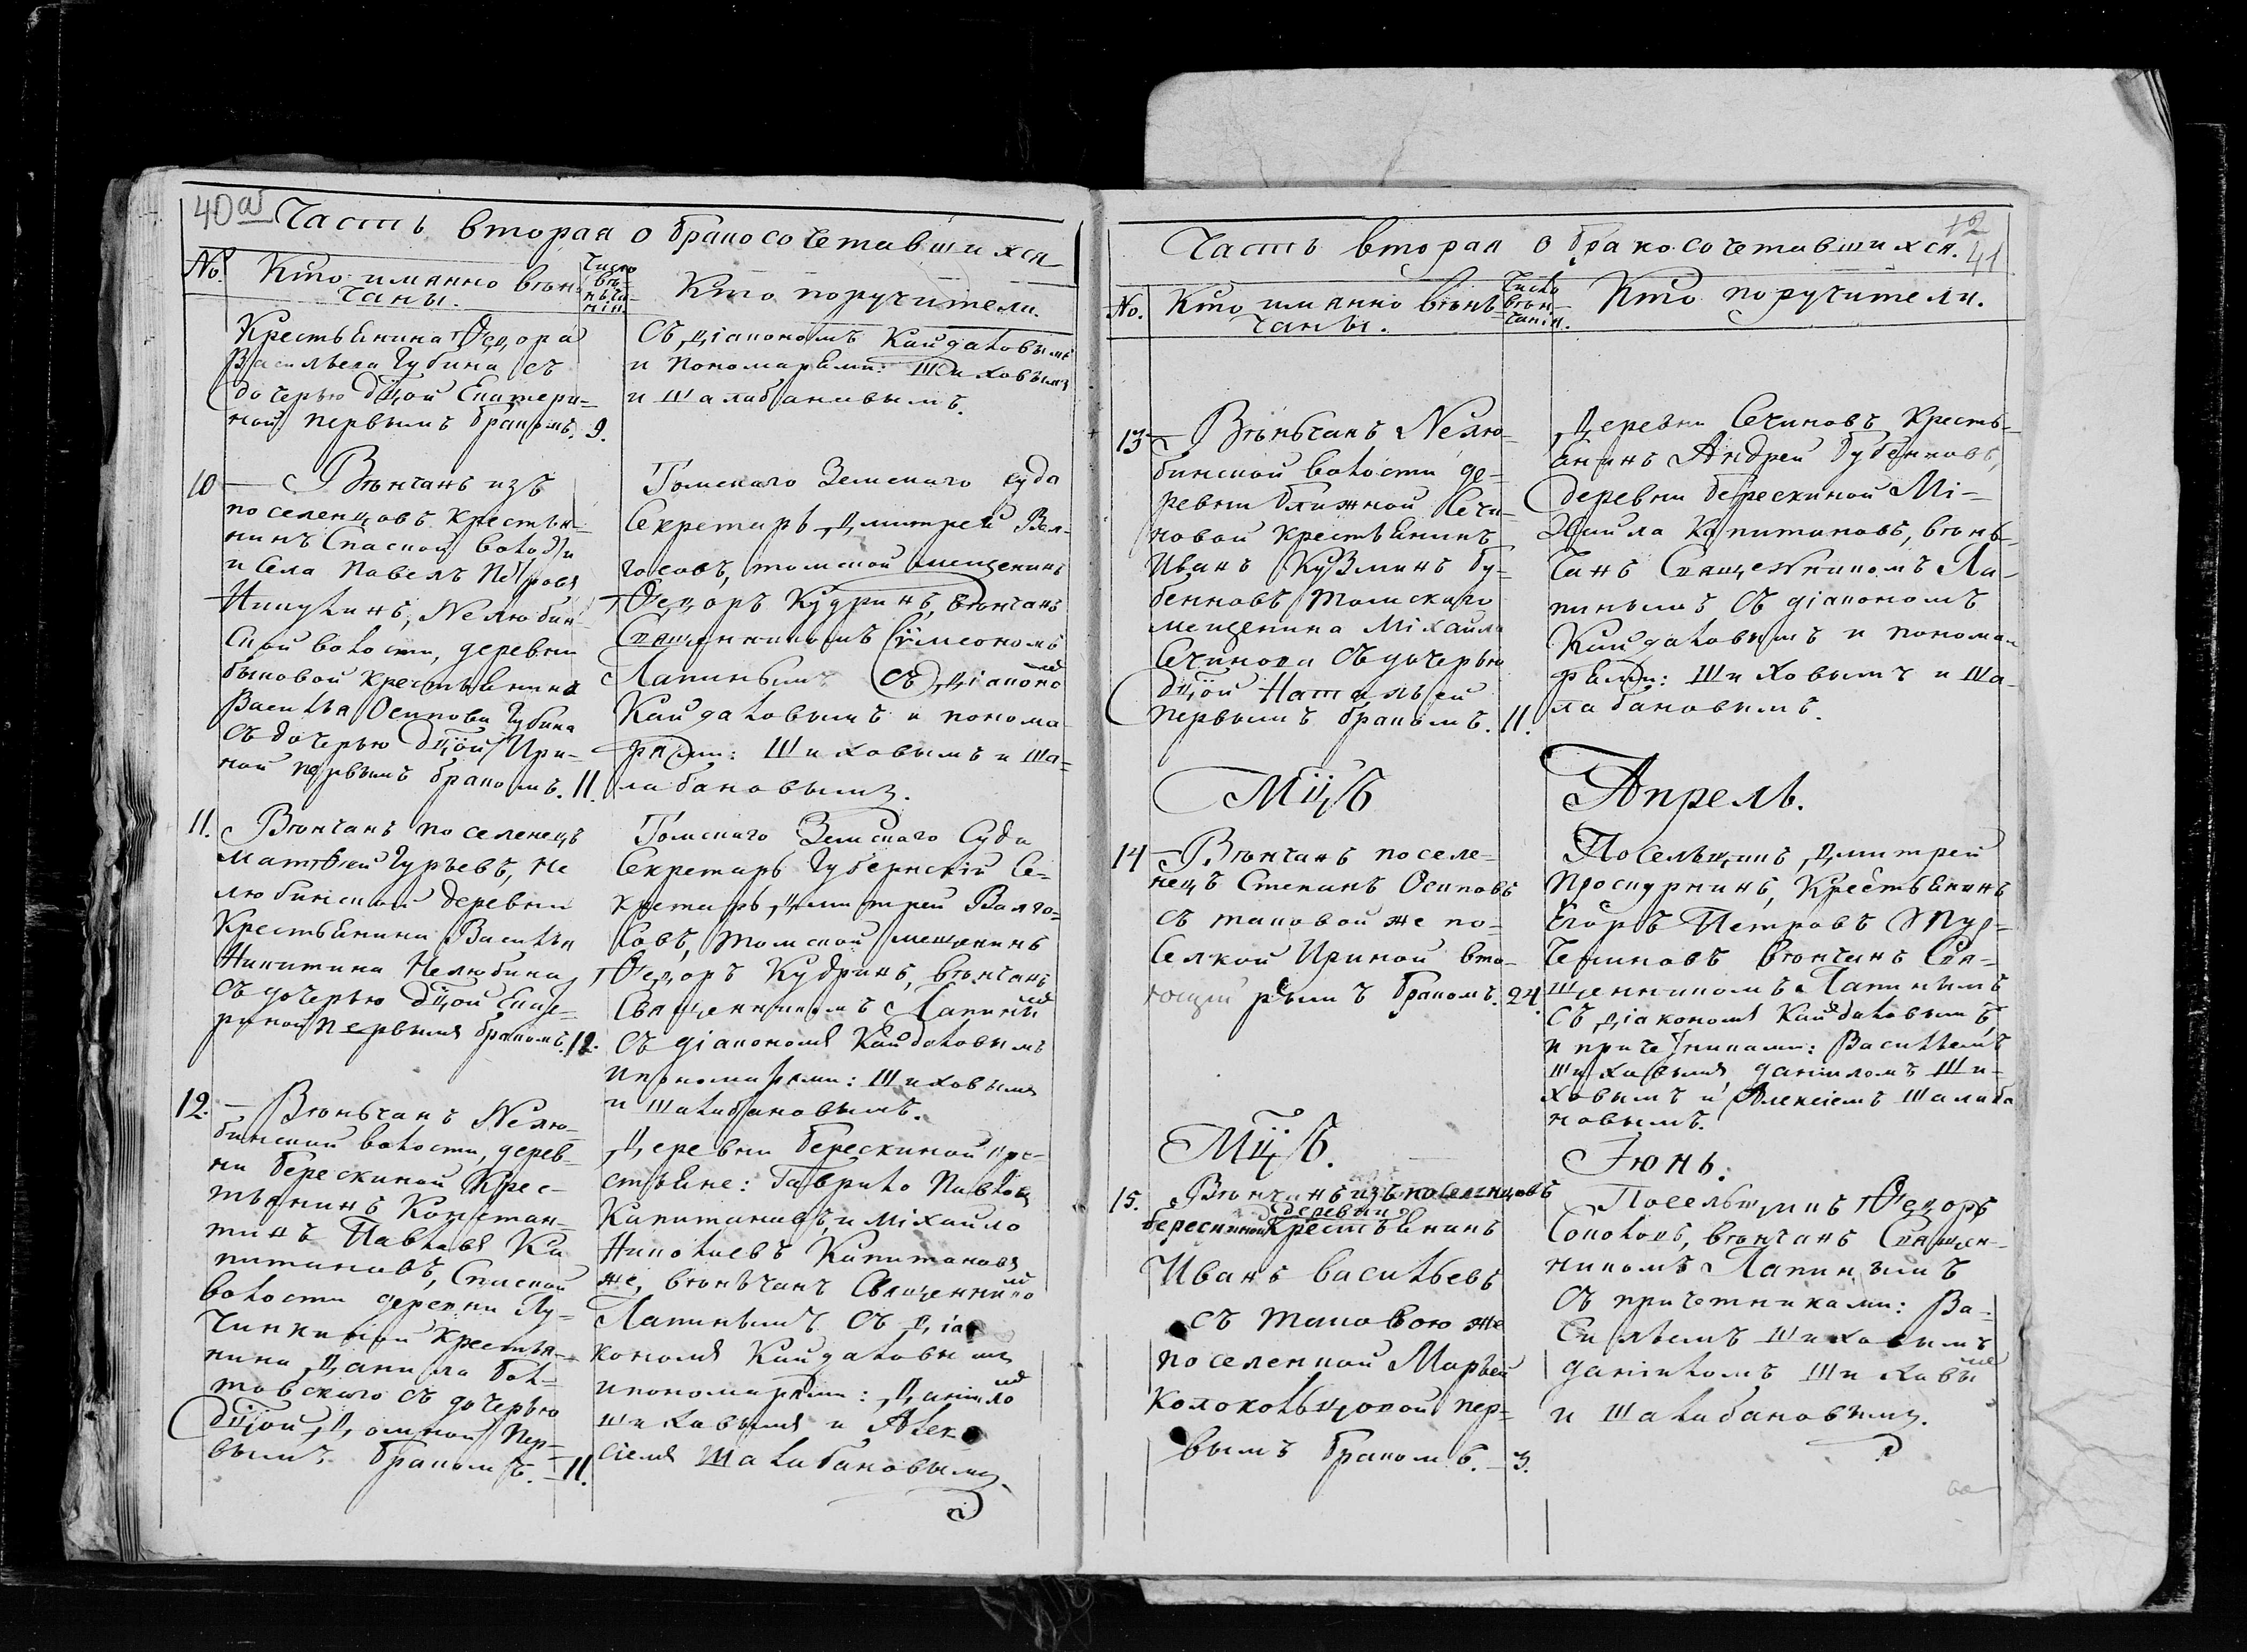 40 об
Часть вторая о бракосочетавшихся
№
Кто имянно вѣн-
чаны.
Число
вѣ-
нча-
нія.
Кто поручители.
Крестьянина Ѳедора
Васильева Губина съ
дочерью дѣцой Екатери-
ной первымъ бракомъ. 9.
Съ діакономъ Кайдаловымъ
и пономарями: Шиховымъ
и Шалабановымъ.
10 — Вѣнчанъ изъ
поселенцовъ крестья-
нинъ Спаской волости
и села Павелъ Петровъ
Никулинъ, Нелюбин-
ской волости, деревни
быковой крестьянина
Василья Осипова Губина
съ дочерью дѣцой Ири-
ной первымъ бракомъ. 11.
Томскаго Земскаго суда
Секретарь Дмитрей Вол-
госовъ, томской мещенинъ
Ѳедоръ Кудринъ, вѣнчанъ
Священникомъ Сѵмеономъ
Лапинымъ съ діаконо мъ
Кайдаловымъ и понома
рями: Шиховымъ и Ша-
лабановымъ.
11. Вѣнчанъ поселенецъ
Матвей Гурьевъ, Не
любинской деревни
Крестьянина Василья
Никитина Нелюбина,
съ дочерью дѣцой Екате-
риной первымъ бракомъ. 12.
Томскаго Земскаго Суда
Секретарь Губернскій Се-
кретарь Дмитрей Валго-
совъ, томской мещенинъ
Ѳедоръ Кудринъ, вѣнчанъ
Священникомъ Лапины мъ
съ діакономъ Кайдаловымъ
и пономарями: Шиховымъ
и Шалабановымъ.
12. — Вѣньчанъ Нелю-
бинской волости, дерев-
ни Берескиной Крес-
тьянинъ Констан-
тинъ Павловъ Ка
питановъ, Спаской
волости деревни Лу-
чинкиной крестья-
нина Данила Бол-
товскаго съ дочерью
дѣцой Домной пер-
вымъ бракомъ. — 11.
Деревни Берескиной кре-
стьяне: Гаврило Павловъ
Капитановъ, и Михайло
Николаевъ Капитановъ
же, вѣнчанъ Священнико мъ
Лапинымъ съ діа
кономъ Кайдаловымъ
и пономарями: Данило мъ
Шиховымъ и Алек
сіемъ Шалабановымъ.
12
41
Часть вторая о бракосочетавшихся.
№.
Кто имянно вѣнь-
чаны.
Число
вѣн-
чанія.
Кто поручители.
13 — Вѣньчанъ Нелю-
бинской волости де-
ревни ближной Сечи-
новой крестьянинъ
Иванъ Кузминъ Бу-
бенновъ томскаго
мещенина Михаила
Сечинова съ дочерью
дѣцой Натальей
первымъ бракомъ. 11.
Деревни Сечиновъ Кресть-
янинъ Андрей Бубенновъ,
деревни берескиной Ми-
хайла Капитановъ, вѣнь-
чанъ Священникомъ Ла-
пинымъ съ діакономъ
Кайдаловымъ и понома-
рями: Шиховымъ и Ша-
лабановымъ.
Мцъ
Апрель.
14 — Вѣнчанъ поселе-
нецъ Степанъ Осиповъ
съ таковой же по-
селкой Ириной вто-
рымъ бракомъ. 24.
Посельщикъ Дмитрей
Проскурнинъ, Крестьянинъ
Егоръ Петровъ
вѣнчанъ Свя-
щенникомъ Лапинымъ
съ діакономъ Кайдаловымъ,
и причетниками: Васильемъ
Шиховымъ, даніиломъ Ши-
ховымъ и Алексіемъ Шалаба
новымъ.
Мцъ.
Іюнь.
15. Вѣнчанъ изъ поселенцовъ
деревни
берескиной Крестьянинъ
Иванъ Васильевъ
съ таковою же
поселенкой Марьей
Колокольцовой пер-
вымъ бракомъ. — 3.
Посельщикъ Ѳедоръ
Соколовъ, вѣнчанъ Священ-
никомъ Лапинымъ
съ причетниками: Ва-
сильемъ Шиховымъ
даніиломъ Шиховы мъ
и Шалабановымъ.